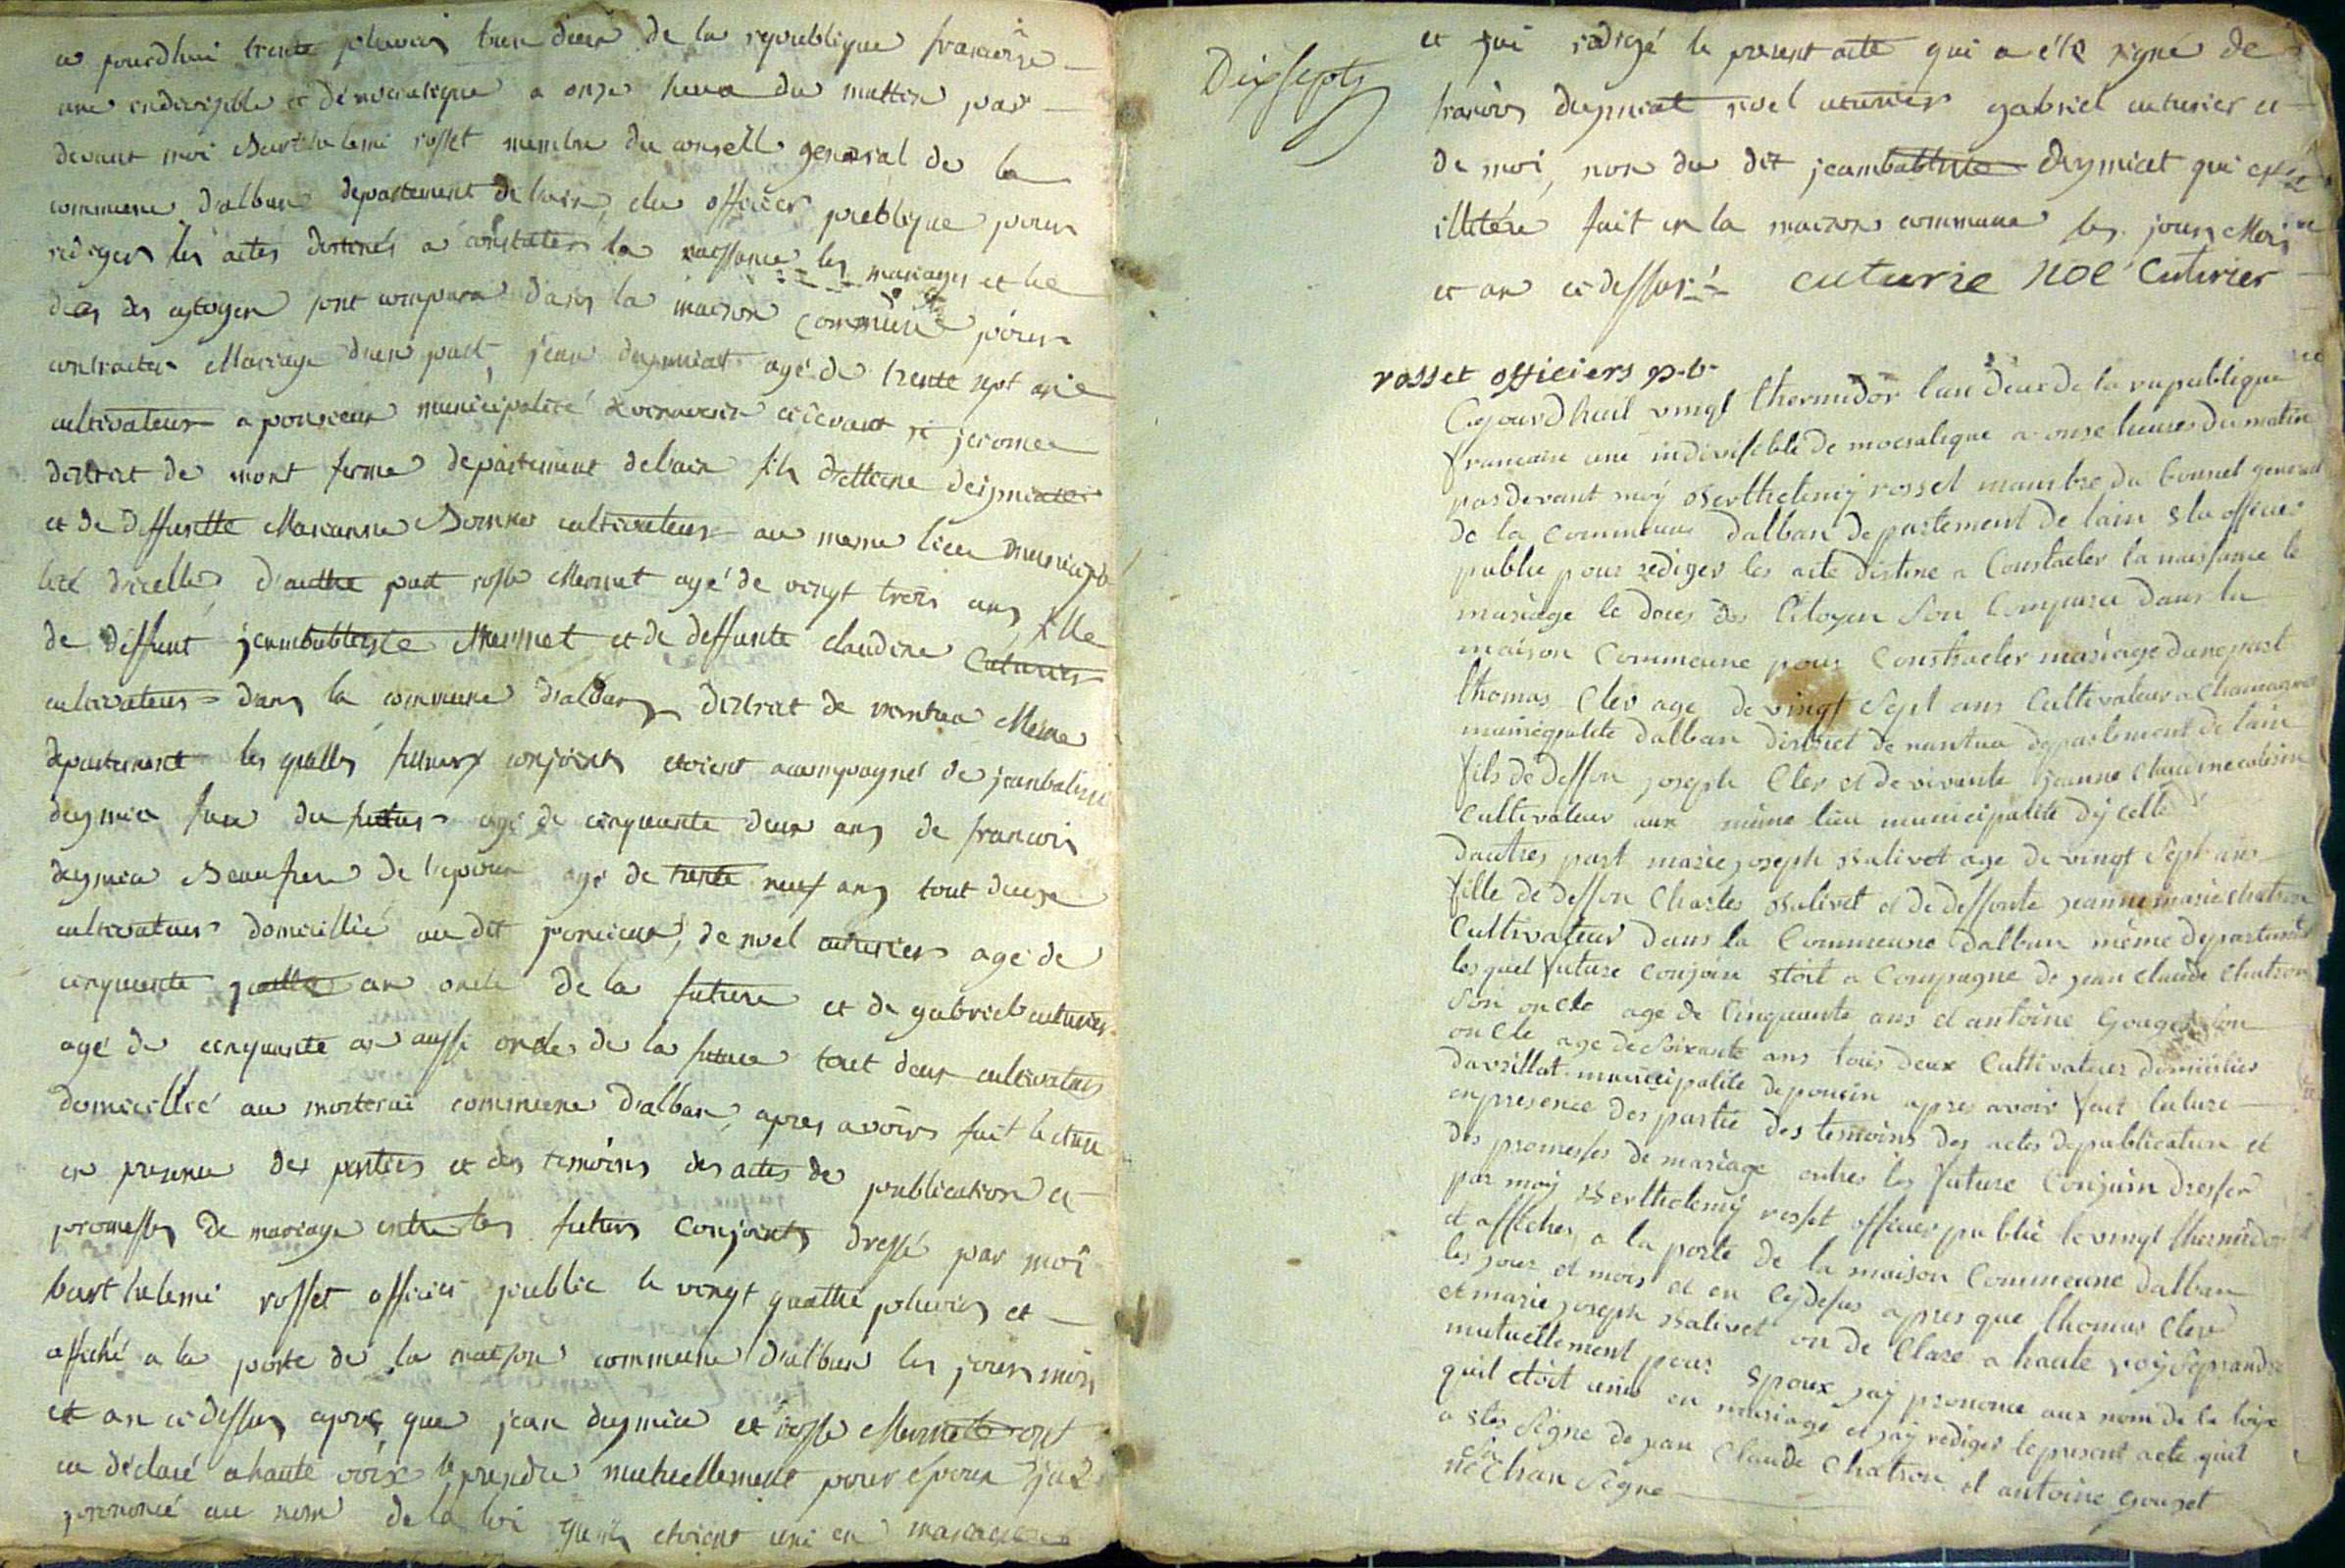 a jourdhui trente pluvios deux de la republique francoise
une indivisible et démocratique a onze heure du mattin par
devant moi Barthelemi rosset membre du conseill general de la
commune d'alban departement de lain, elu officier publique pour
rediger les actes destinés a constater la naissance les mariages et le
des citoyen sont comparu dans la maison commune pour
contracter Mariage d'une part, jean deymiat agé de trente sept ans
cultivateur a poncieux municipalité cidevant st jerome
district de mont ferme departement de l'ain fils deymiat
et de deffuntte Marianne cultivateur au meme lieu municipa
lité d'icelle, d'authe part rose Mermet agé de vingt trois ans fille
de deffunt jeanbabtiste Mermet et de deffunte claudine Cuturier
cultivateur dans la commune d'alban district de nantua Meme
departement les quelles futeurs conjoints etoient acompagnes de jeanbatiste
deymia du futur agé de cinquante deux ans de francois
deymia Beaufrere de l'epoux agé de trente neuf ans tout deux
cultivateur domicillié au dit poncieux, de noel cuturier agé de
cinquante quattre an oncle de la future et de gabriel cuturier
agé de cinquante an aussi oncle de la future tout deux cultivateurs
domicillié au morterai commune d'alban, apres avoirs fait lecture
en presence des parties et des temoins des actes de publication et
promesses de mariage entre les futurs conjoints dressé par moi
barthelemi rosset officier public le vingt quatthe pluvios et
affiché a la porte de la maison commune d'alban les jours mois
et an ci dessus apres que jean deymia et rose Mermet ont
eu déclaré a haute voix se prendre mutuellement pour Epoux j'ai
prononcé au nom de la loi qu'ils etoient uni en mariage
Dix septs
et jai redigé le present acte qui a été signé de
francois deymiat noel cuturier gabriel cuturier et
de moi, non du dit jeambabtiste deymiat qui est
illitéré fait en la maison commune les jours Mois
et an ci dessus cuturie noé cuturier
rosset officiers p.b.
Cejourdhuil vingt thermidor lan deux de la republique
francaise une indivisible de mocratique a onse heures du matin
pardevant moÿ Berthelemÿ rosset manbre du Consiel general
de la Commune dalban departement de lain elu officier
public pour rediger les acte distine a Constacter la naissance le
mariage le deces des Citoyen Son Comparu dans la
maison Commeune pour Constracter mariage dune part
thomas Cler age de vingt Sept ans Cultivateur a
municipalite dalban district de nantua departement de lain
fils de deffun joseph Cler et de vivante jeanne Claudine
Cultivateur aux même lieu municipalite dÿcelle
dautres part marie joseph Balivet age de vingt Sept ans
fille de deffun Charles Balivet et de deffunte jeanne marie chatron
Cultivateur dans la Commeune dalban même departement
les quel future conjoin etoit a Compagne de jean Claude Chatron
Son oncle age de Cinquante ans et antoine Gouget Son
oncle age de Soixante ans tous deux Cultivateur domicilies
davrillat municipalite deponcin apres avoir fait luture
enpresence des partie des temoins des actes depublicature et
des promesses de mariage entres les future Conjoin dresser
par moÿ Berthelemÿ rosset officier public le vingt thermidor
et afficher a la porte de la maison Commeune dalban
les jour et mois et en Cydesus apres que thomas Cler
et marie joseph Balivet on de Clare a haute voiÿ Seprandre
mutuellement pour Epoux jaÿ prononce aux nom de la loix
quil etoit unis en mariage et jaÿ rediger le present acte quil
a etes Signe de jean Claude Chatron et antoine Gouget
Signe